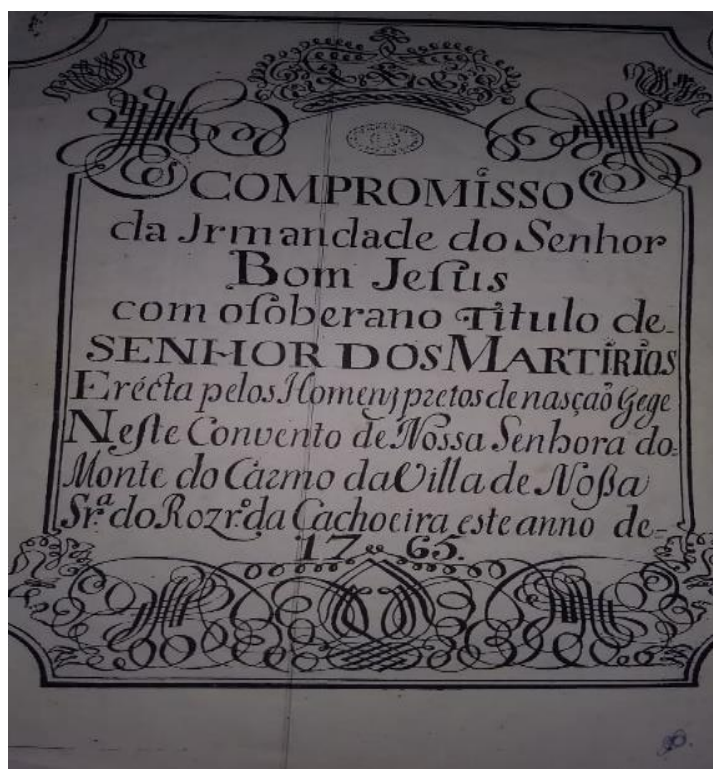 COMPROMISSO
da Jrmandade do Senhor
Bom Jeſus
com oſoberano Titulo de-
SENHOR DOS MARTIRIOS
Erécta pelos Homenz pretos de nasçaõ Gege
Neſte Convento de Nossa Senhora do
Monte do Carmo da Villa de Noßa
Sr.ª do Rozr.º da Cachoeira este anno de-
1765.